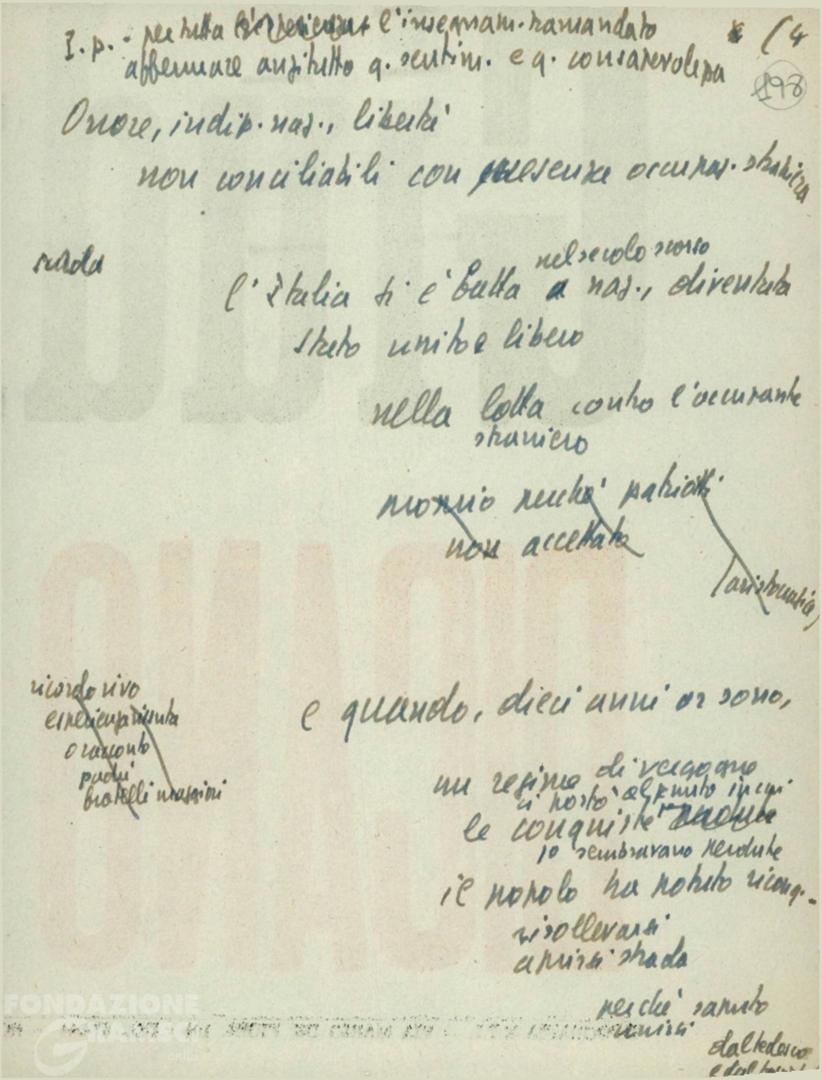 I. p. - per tutta l'esperienza e l'insegnam. tramandato
affermare anzitutto q. sentim. e q. consapevolezza
(4
198
Onore, indip. naz., libertà
non conciliabili con presenza occupaz. straniera
strada
nel secolo scorso
l'Italia si è fatta a naz., diventata
stato unito e libero
nella lotta contro l'occupante
straniero
proprio perché patriotti
non accettato
(aristocratica)
ricordo vivo
esperienza vissuta
o racconto
padri
fratelli maggiori
e quando, dieci anni or sono,
un regime di vergogna
ci portò al punto in cui
le conquiste
sembravano perdute
il popolo ha potuto riconq.
risollevarsi
aprirsi strada
perché saputo
unirsi
dal tedesco
FONDAZIONE